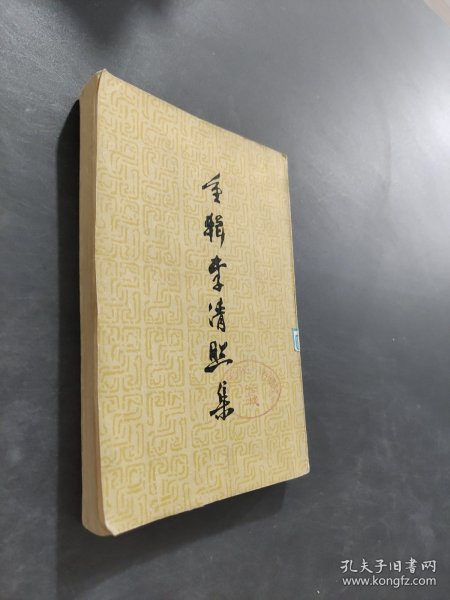 重辑李清照集
孔夫子旧书网
www.kongfz.com